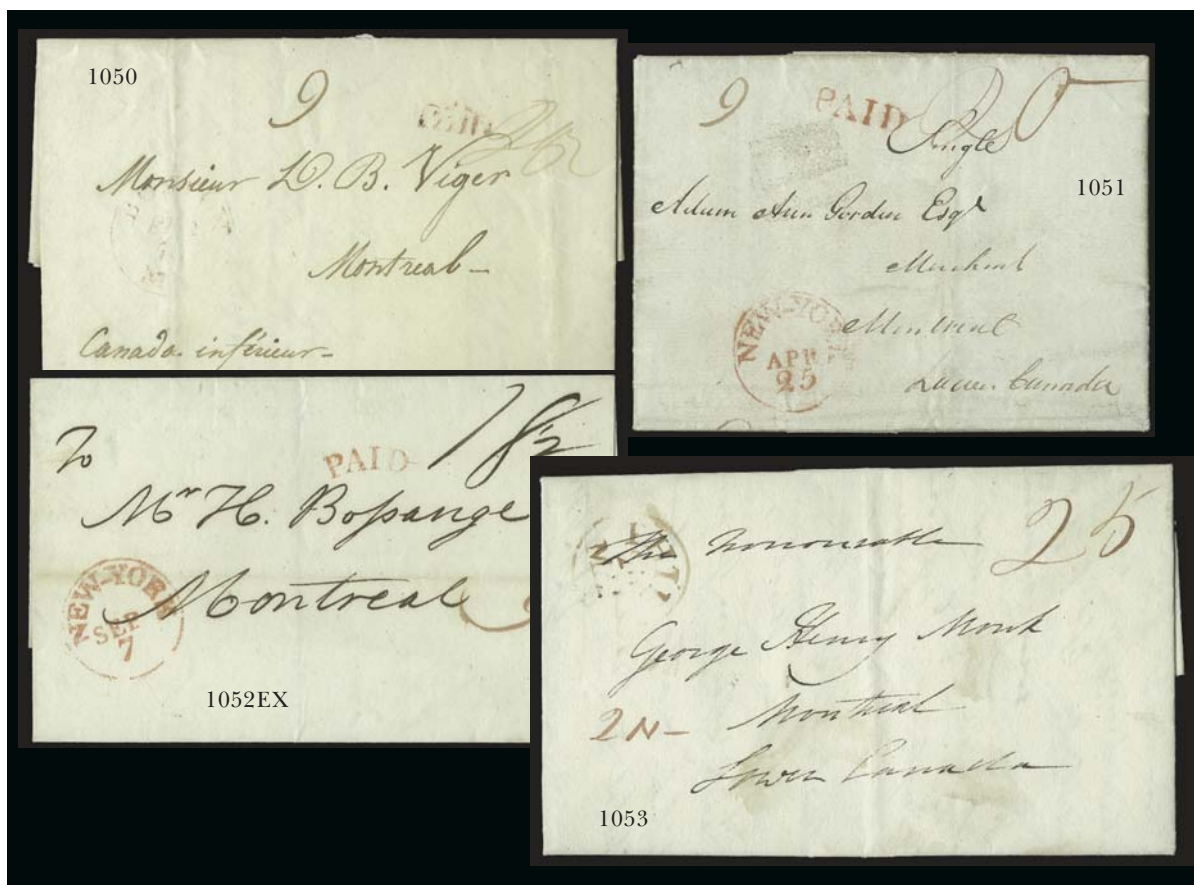 1050
9
PAID
Monsieur D. B. Viger
Montreal -
Canada inférieur -
9
PAID
Single
1051
Adam Ann Gordon Esqr
Merchant
Montreal
NEW-YORK
APR
25
Lower Canada
18½
To
PAID
Mr H. Bossange
Montreal
NEW-YORK
SEP
7
1052EX
The Honourable
25
George Henry Monk
2N-
Montreal
Lower Canada
1053